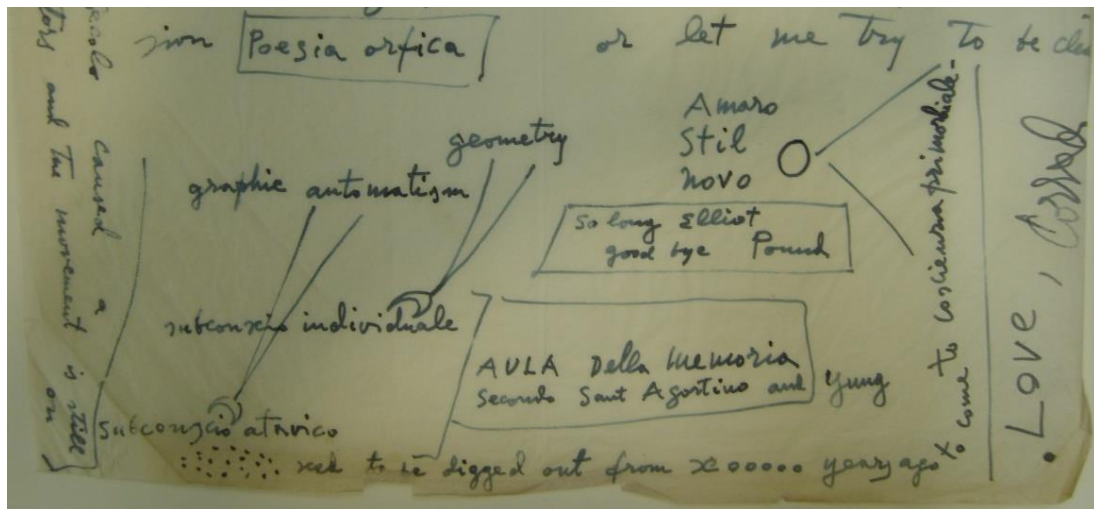 sion Poesia orfica or let me try to be clea
Amaro
Stil
novo
geometry
graphic automatism
So long Elliot
good bye Pound
subconscio individuale
AULA Della Memoria
Secondo Sant Agostino and Yung
subconscio atavico
to be digged out from x00000 years ago
to come to coscienza primordiale-
Love, Corrado
caused a
tors and the movement is still
on